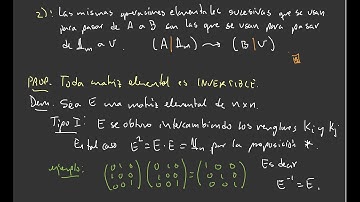 2): Las mismas operaciones elementales sucesivas que se usan
para pasar de A a B son las que se usan para pasar
de 1m a U (A | 1m) ⟿ (B | U)
PROP. Toda matriz elemental es INVERTIBLE.
Dem. Sea E una matriz elemental de n×n.
Tipo I: E se obtuvo intercambiando los renglones Ki y Kj
En tal caso E² = E · E = 1n por la proposición *.
ejemplo: (0 1 0 / 1 0 0 / 0 0 1) (0 1 0 / 1 0 0 / 0 0 1) = (1 0 0 / 0 1 0 / 0 0 1)
Es decir
E⁻¹ = E.